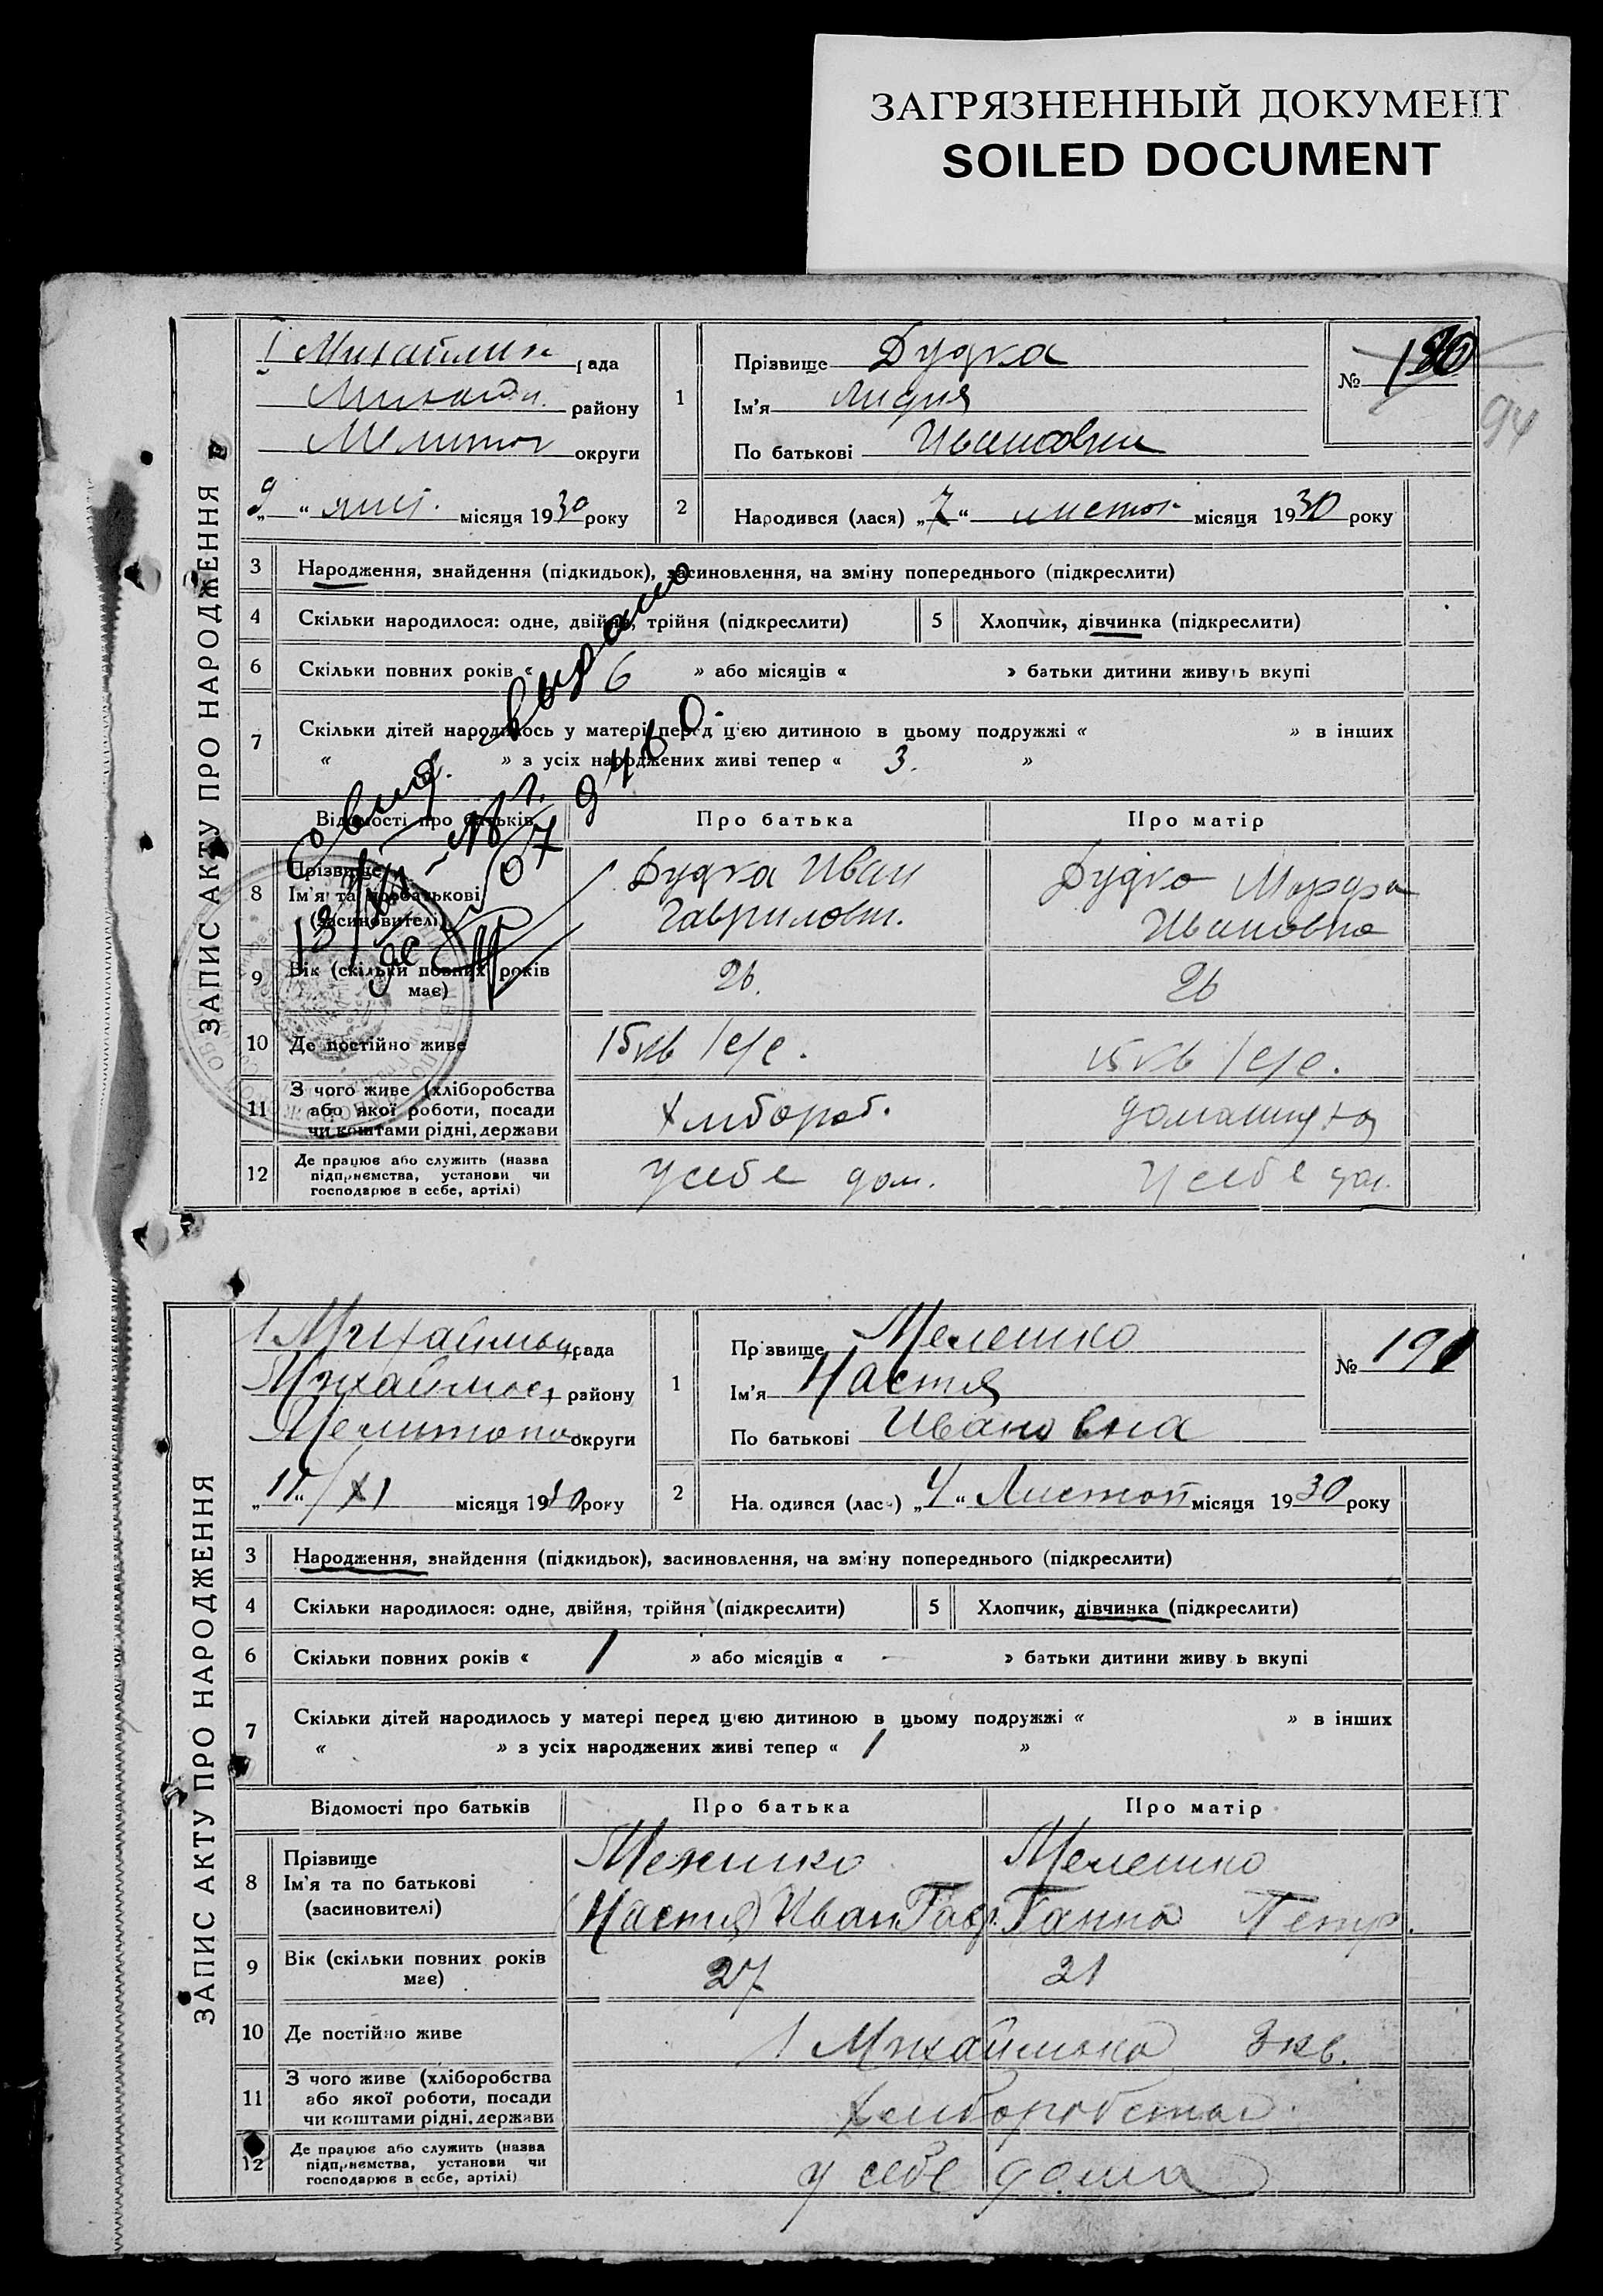 ЗАГРЯЗНЕННЫЙ ДОКУМЕНТ
SOILED DOCUMENT
94
ЗАПИС АКТУ ПРО НАРОДЖЕННЯ
рада
району
Мелитоп округи
9 місяця 1930 року
1
Прізвище Будка
Ім'я Лидия
По батькові Ивановна
№
2
Народився (лася) „7“ листоп місяця 1930 року
3 Народження, знайдення (підкидьок), засиновлення, на зміну попереднього (підкреслити)
4 Скільки народилося: одне, двійня, трійня (підкреслити) 5 Хлопчик, дівчинка (підкреслити)
6 Скільки повних років « 6 » або місяців « » батьки дитини живуть вкупі
7 Скільки дітей народилось у матері перед цією дитиною в цьому подружжі « » в інших
« » з усіх народжених живі тепер « 3. »
Відомості про батьків Про батька Про матір
8 Прізвище
Ім'я та по батькові
(засиновителі)
Будка Иван
Гаврилов.
Будко Марфа
Ивановна
9 Вік (скільки повних років має) 26. 26
10 Де постійно живе 15 кв 1 с/с. 15 кв 1 с/с.
11 З чого живе (хліборобства
або якої роботи, посади
чи коштами рідні, держави
Хлибороб.
12 Де працює або служить (назва
підприємства, установи чи
господарює в себе, артілі)
у себе дом. у себе дом.
ЗАПИС АКТУ ПРО НАРОДЖЕННЯ
1 Михайлівськ рада
Михайлівськ району
Мелитопо округи
„11“ / XI місяця 1930 року
1
Прізвище Мелешко
Ім'я Настя
По батькові Ивановна
№ 191
2
Народився (лась) „4“ Листоп місяця 1930 року
3 Народження, знайдення (підкидьок), засиновлення, на зміну попереднього (підкреслити)
4 Скільки народилося: одне, двійня, трійня (підкреслити) 5 Хлопчик, дівчинка (підкреслити)
6 Скільки повних років « 1 » або місяців « – » батьки дитини живуть вкупі
7 Скільки дітей народилось у матері перед цією дитиною в цьому подружжі « » в інших
« » з усіх народжених живі тепер « 1 »
Відомості про батьків Про батька Про матір
8 Прізвище
Ім'я та по батькові
(засиновителі)
Мелешко
(Настя) Иван Гавр.
Мелешко
Ганна Петр.
9 Вік (скільки повних років має) 27 21
10 Де постійно живе 1 Михайлівка 3 кв.
11 З чого живе (хліборобства
або якої роботи, посади
чи коштами рідні, держави
12 Де працює або служить (назва
підприємства, установи чи
господарює в себе, артілі)
у себе дома